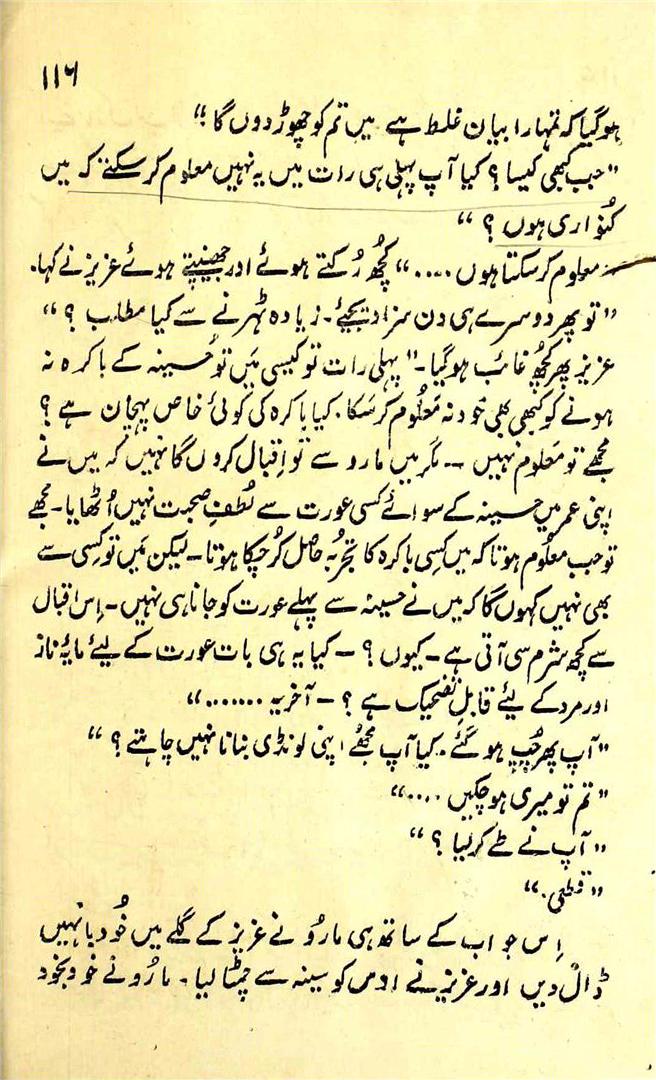 ۱۱۶
ہو گیا کہ تمہارا بیان غلط ہے میں تم کو چھوڑ دوں گا ؟“
”جب کبھی کیسا ؟ کیا آپ پہلی ہی رات میں یہ نہیں معلوم کر سکتے کہ میں
کنواری ہوں ؟“
معلوم کر سکتا ہوں ....“ کچھ رُکتے ہوئے اور جھینپتے ہوئے عزیز نے کہا۔
”تو پھر دوسرے ہی دن سزا دیجیئے۔ زیادہ ٹہرنے سے کیا مطلب ؟“
عزیز پھر کچھ غائب ہو گیا۔ ”پہلی رات تو کیسی میں تو حسینہ کے باکرہ نہ
ہونے کو کبھی بھی خود نہ معلُوم کر سکا۔ کیا باکرہ کی کوئی خاص پہچان ہے ؟
مجھے تو معلوم نہیں -- مگر میں مارو سے تو اقبال کروں گا نہیں کہ میں نے
اپنی عمر میں حسینہ کے سوائے کسی عورت سے لُطفِ صحبت نہیں اُٹھایا۔ مجھے
تو جب معلُوم ہوتا کہ میں کِسی باکرہ کا تجربہ حاصل کر چکا ہوتا۔ لیکن میں تو کِسی سے
بھی نہیں کہوں گا کہ میں نے حسینہ سے پہلے عورت کو جانا ہی نہیں۔ اِس اقبال
سے کچھ شرم سی آتی ہے۔ کیوں ؟ - کیا یہ ہی بات عورت کے لیئے مایۂ ناز
اور مرد کے لیئے قابلِ تضحیک ہے ؟ - آخر یہ .......“
”آپ پھر چُپ ہو گئے۔ کیا آپ مجھُے اپنی لونڈی بنانا نہیں چاہتے ؟“
”تم تو میری ہو چکیں ....“
”آپ نے طے کر لیا ؟“
”قطعی۔“
اِس جواب کے ساتھ ہی مارُو نے عزیز کے گلے میں خُود باہنیں
ڈال دیں اور عزیز نے اوس کو سینہ سے چمٹا لیا۔ مارُو نے خود بخود